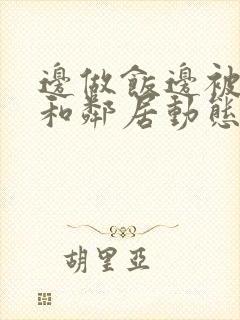 邊做飯邊被
和鄰居動態
胡里亞